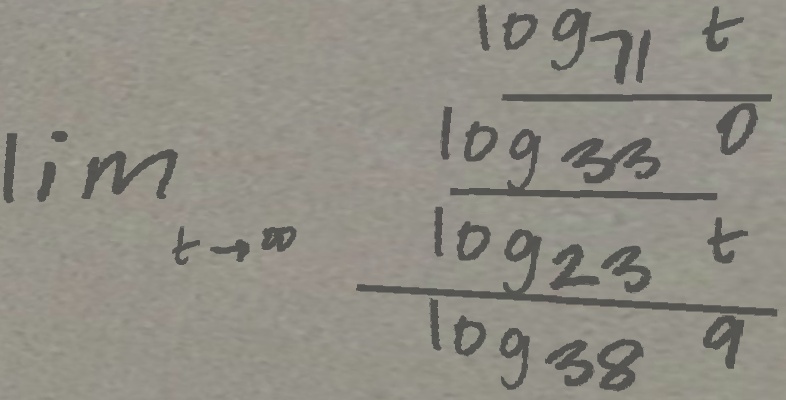 lim_{t→∞} \frac{\frac{\frac{log_{71} t}{log_{33} 0}}{log_{23} t}}{log_{38} 9}